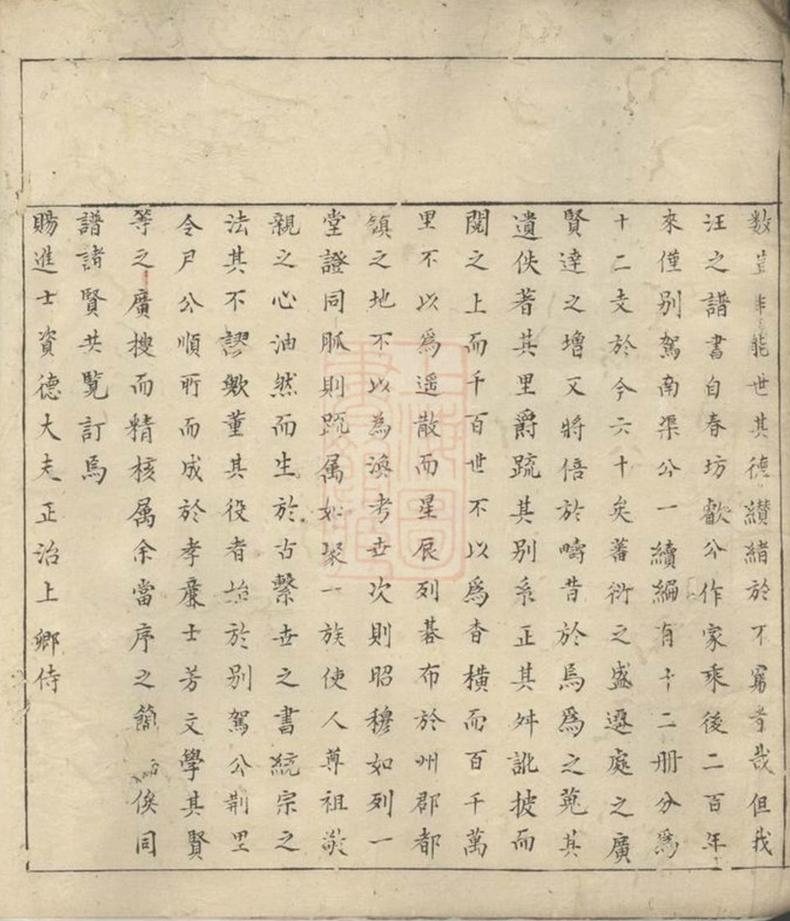 数豈非能世其德纉緒於不窮者哉但我
汪之譜書自春坊歡公作家乘後二百年
來僅别駕南渠公一續編有十二册分爲
十二支於今六十矣蕃衍之盛遷處之廣
賢達之增又將倍於疇昔於焉爲之蒐其
遺佚著其里爵䟽其别系正其舛訛披而
閱之上而千百世不以爲杳横而百千萬
里不以爲遥散而星辰列碁布於州郡都
鎮之地不以為渙考世次則昭穆如列一
堂證同脈則䟽属如聚一族使人尊祖敬
親之心油然而生於古繫世之書統宗之
法其不謬歟董其役者始於别駕公荆里
令尹公順所而成於孝廉士芳文學其賢
等之廣搜而精核属余當序之簡俟同
譜諸賢共覽訂焉
賜進士資德大夫正治上卿侍